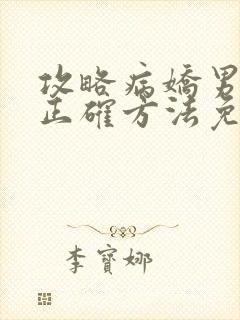 攻略病嬌男
正確方法免
李寶娜